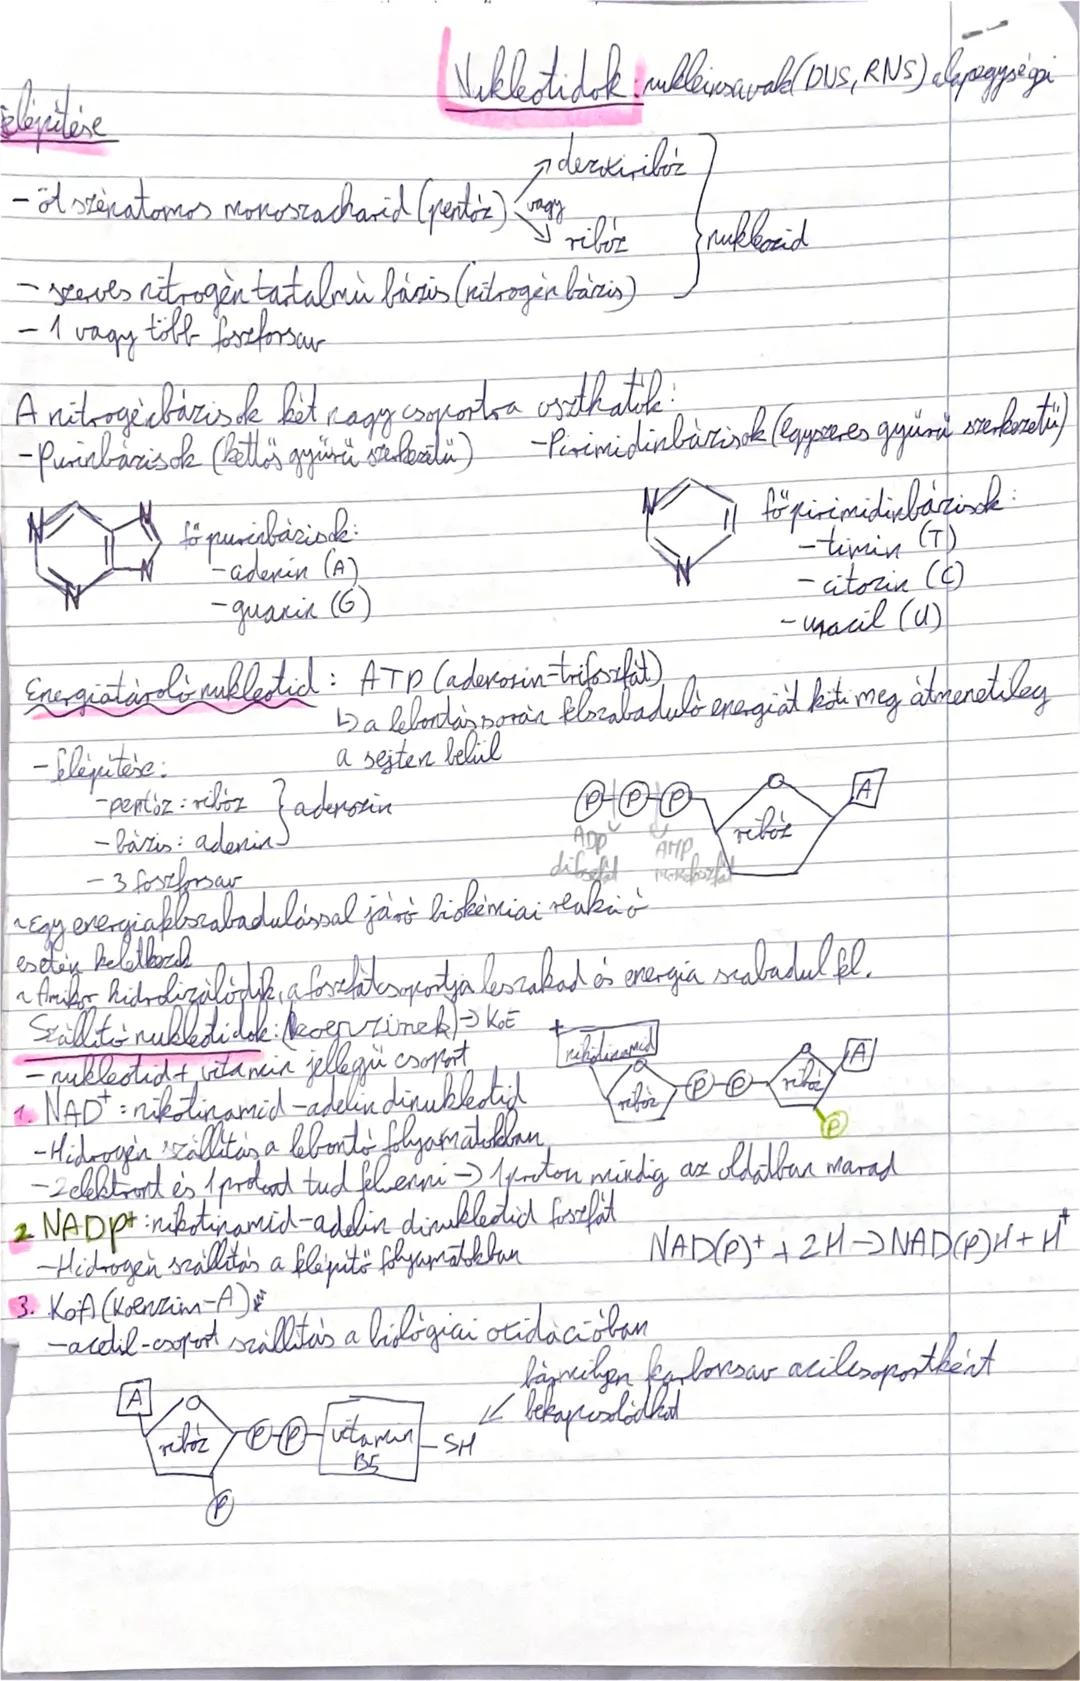 Nukleotidok: nukleinsavak (DNS, RNS) alapegységei
Felépítése
- öt szénatomos monoszacharid (pentóz)
dezoxiribóz
vagy
ribóz
nukleozid
- szerves nitrogén tartalmú bázis (nitrogén bázis)
- 1 vagy több foszforsav
A nitrogénbázisok két nagy csoportra oszthatók:
- Purinbázisok (kettős gyűrű szerkezetű)
- Pirimidinbázisok (egyszeres gyűrű szerkezetű)
N N N N
fő purinbázisok:
- adenin (A)
- guanin (G)
N N
fő pirimidinbázisok:
- timin (T)
- citozin (C)
- uracil (U)
Energiatároló nukleotid: ATP (adenozin-trifoszfát)
↳ a lebontás során felszabaduló energiát köti meg átmenetileg
a sejten belül
- felépítése:
- pentóz: ribóz
- bázis: adenin
} adenozin
- 3 foszforsav
P P P ribóz A
ADP
difoszfát
AMP
monofoszfát
~ Egy energiafelszabadulással járó biokémiai reakció
esetén keletkezik
~ Amikor hidrolizálódik, a foszfátcsoportja leszakad és energia szabadul fel.
Szállító nukleotidok: (koenzimek) → KoE
- nukleotid + vitamin jellegű csoport
+ nikotinamid
ribóz P P ribóz A
P
1. NAD+: nikotinamid-adelin dinukleotid
- Hidrogén szállítás a lebontó folyamatokban
- 2 elektront és 1 protont tud felvenni → 1 proton mindig az oldatban marad
2. NADP+: nikotinamid-adelin dinukleotid foszfát
- Hidrogén szállítás a felépítő folyamatokban
NAD(P)+ + 2H → NAD(P)H + H+
3. KoA (Koenzim-A)
- acetil-csoport szállítás a biológiai oxidációban
bármilyen karbonsav acilcsoportként
bekapcsolódhat
A ribóz P P vitamin B5 - SH
P